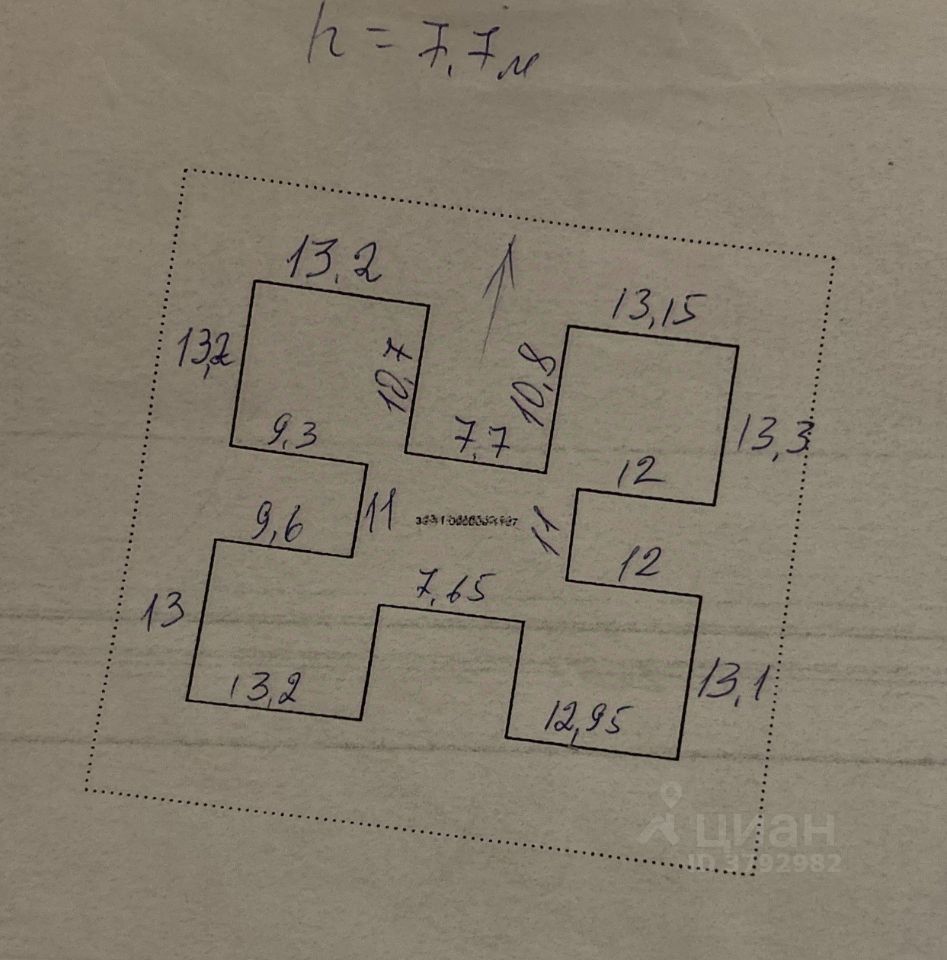 h = 7,7м
13,2
13,15
13,2
10,7
10,8
13,3
9,3
7,7
12
9,6
11
11
12
7,65
13
13,1
13,2
12,95
циан
ID 3792982